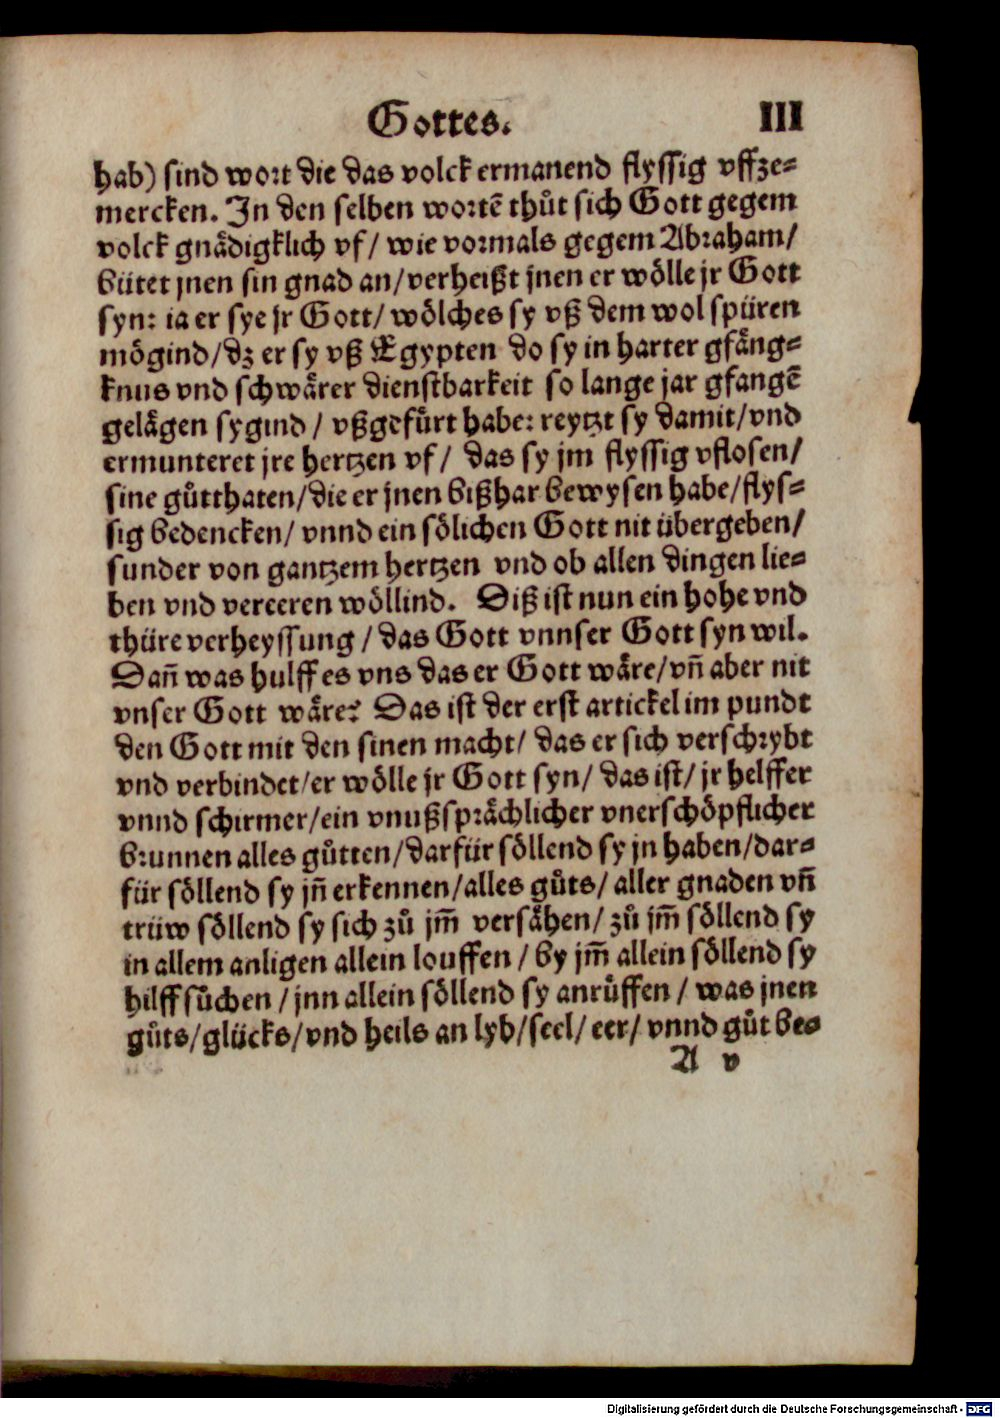 Gottes. III
hab) sind wort die das volck ermanend flyssig vffze-
mercken. In den selben wortẽ thůt sich Gott gegem
volck gnaͤdigklich vf/ wie vormals gegem Abraham/
bütet jnen sin gnad an/verheißt jnen er woͤlle jr Gott
syn: ia er sye jr Gott/ woͤlches sy vß dem wol spüren
moͤgind/dz er sy vß Egypten do sy in harter gfaͤng-
knus vnd schwaͤrer dienstbarkeit so lange jar gfangẽ
gelaͤgen sygind / vßgefuͤrt habe: reytzt sy damit/vnd
ermunteret jre hertzen vf/ das sy jm flyssig vflosen/
sine guͤtthaten/die er jnen bißhar bewysen habe/flys-
sig bedencken/ vnnd ein soͤlichen Gott nit übergeben/
sunder von gantzem hertzen vnd ob allen dingen lie-
ben vnd vereeren woͤllind. Diß ist nun ein hohe vnd
thüre verheyssung / das Gott vnnser Gott syn wil.
Dañ was hulff es vns das er Gott waͤre/vñ aber nit
vnser Gott waͤre? Das ist der erst artickel im pundt
den Gott mit den sinen macht/ das er sich verschrybt
vnd verbindet/er woͤlle jr Gott syn/ das ist/ jr helffer
vnnd schirmer/ein vnußspraͤchlicher vnerschoͤpflicher
brunnen alles guͤtten/darfür soͤllend sy jn haben/dar-
für soͤllend sy jñ erkennen/alles guͤts/ aller gnaden vñ
trüw soͤllend sy sich zů jm̃ versaͤhen/ zů jm̃ soͤllend sy
in allem anligen allein louffen / by jm̃ allein soͤllend sy
hilff sůchen / jnn allein soͤllend sy anruͤffen / was jnen
guͤts/glücks/vnd heils an lyb/seel/ eer/ vnnd gůt be-
A v
Digitalisierung gefördert durch die Deutsche Forschungsgemeinschaft - DFG